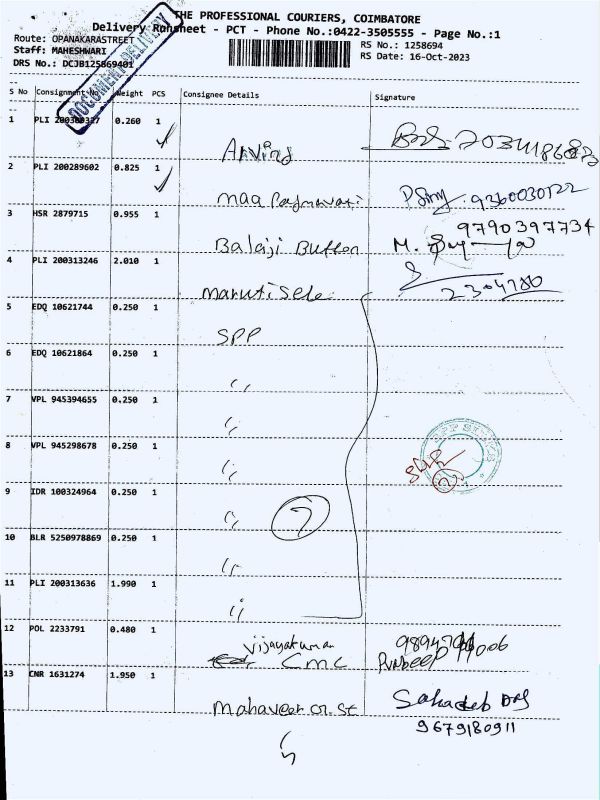 THE PROFESSIONAL COURIERS, COIMBATORE
Delivery Runsheet - PCT - Phone No.:0422-3505555 - Page No.:1
Route: OPANAKARASTREET
RS No.: 1258694
Staff: MAHESHWARI
RS Date: 16-Oct-2023
DRS No.: DCJB125869401
DOCUMENT DELIVERY
S No Consignment No Weight PCS Consignee Details Signature
1 PLI 200300327 0.260 1 Arvind
2 PLI 200289602 0.825 1 maa Padmavati 9360030122
3 HSR 2879715 0.955 1 Balaji Button M. 9790397734
4 PLI 200313246 2.010 1 maruti Sele 2304780
5 EDQ 10621744 0.250 1 SPP
6 EDQ 10621864 0.250 1 ,,
7 VPL 945394655 0.250 1 ,,
8 VPL 945298678 0.250 1 ,,
9 IDR 100324964 0.250 1 ,, 7
10 BLR 5250978869 0.250 1 ,,
11 PLI 200313636 1.990 1 ,,
12 POL 2233791 0.480 1 vijayakumar CMC
13 CNR 1631274 1.950 1 mahaveer cr. st Sahadeb DAS
9679180911